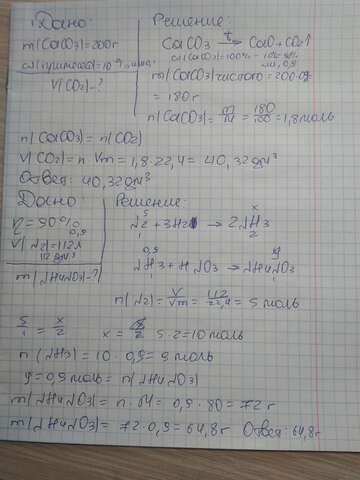 Дано:
m(CaCO3)=200г
ω(примесей)=10%
V(CO2)-?
Решение:
CaCO3 →t CaO+CO2↑
ω(CaCO3)=100%-10%=90%
m(CaCO3)чистого=200·0,9
=180г
n(CaCO3)= m/M = 180/100 =1,8моль
n(CaCO3)=n(CO2)
V(CO2)=n Vm=1,8·22,4=40,32дм³
Ответ: 40,32дм³
Дано:
η=90%
0,9
V(N2)=112л
112дм³
m(NH4NO3)-?
Решение:
5 x
N2+3H2 → 2NH3
1 2
0,9 y
NH3+HNO3 → NH4NO3
1 1
n(N2)= V/Vm = 112/22,4 = 5 моль
5/1 = x/2 x= 5·2=10моль
n(NH3)=10·0,9=9моль
y=0,9моль=n(NH4NO3)
m(NH4NO3)=n·M=0,9·80=72г
m(NH4NO3)=72·0,9=64,8г Ответ: 64,8г